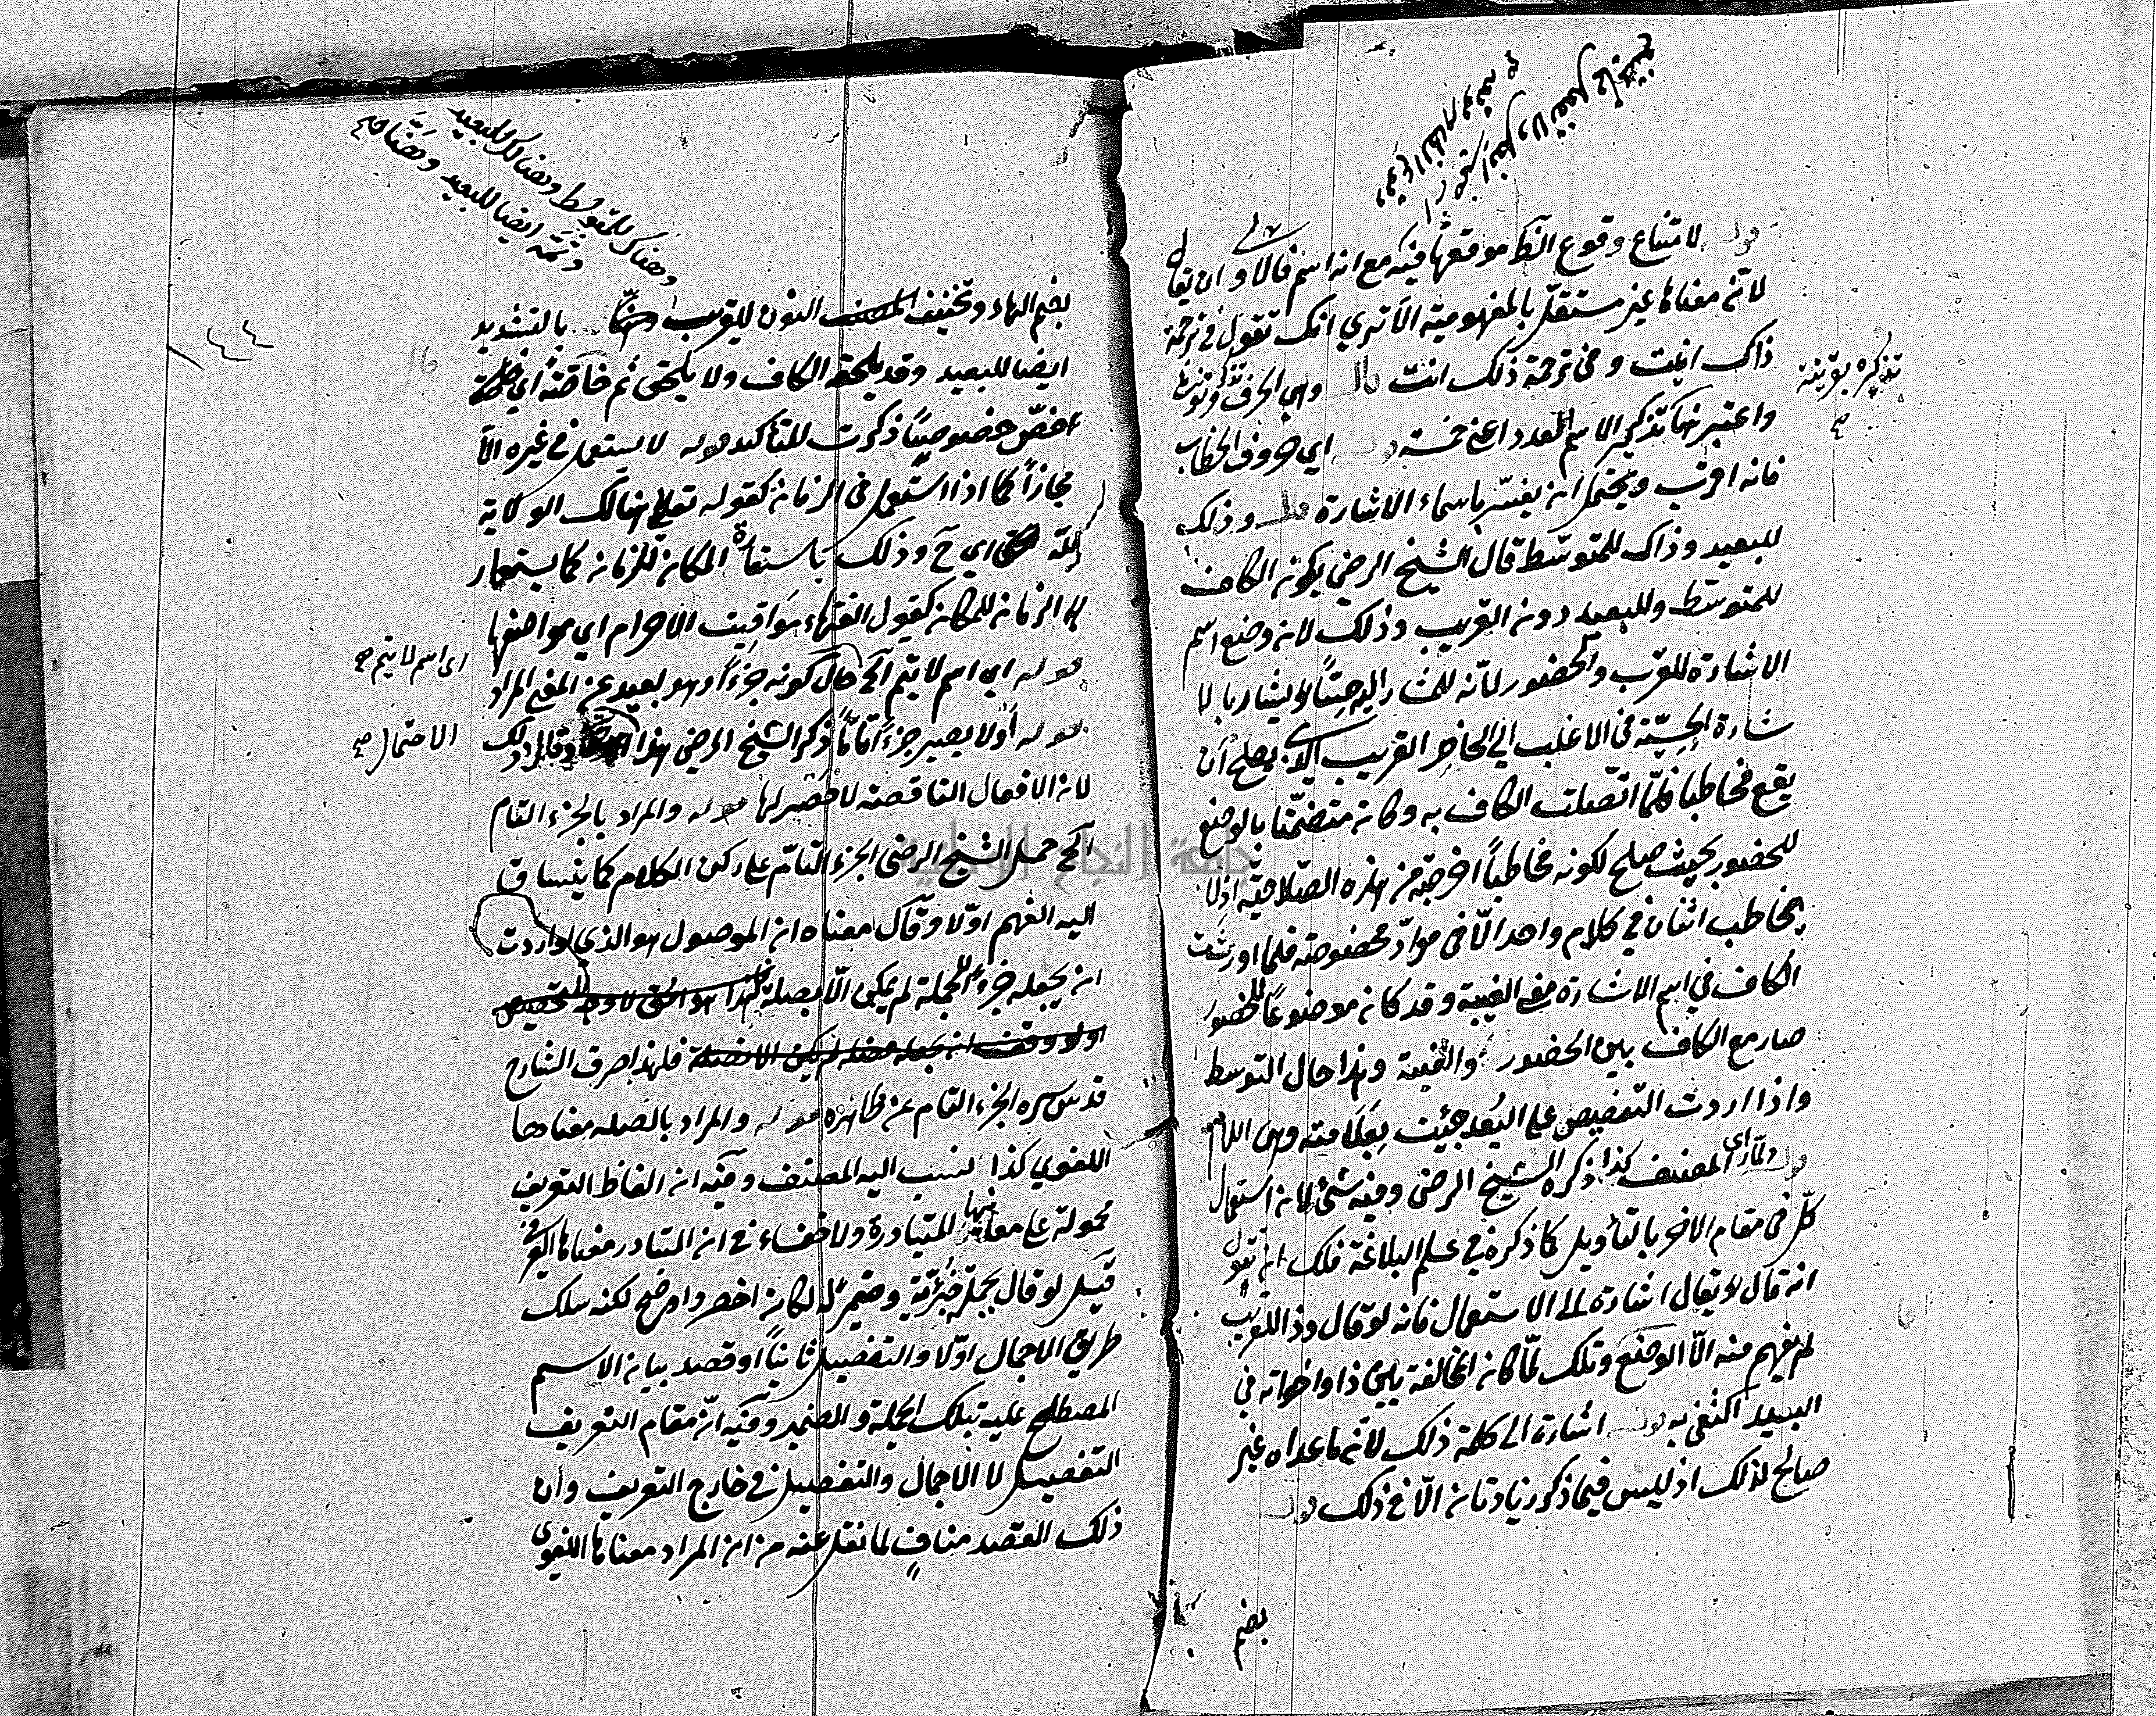 قوله لامتناع وقوع الظ موقعها فيه مع انه اسم قالا و ان يقال
لانّ معناها غير مستقلّ بالمفهومية الا ترى انك تقول في ترجمة
ذاك اينت و في ترجمة ذلك انت قال وهي الحرف
واعتبر تذكير الاسم العدد اعني خمسة قوله اي حروف الخطاب
فانه اقرب ويحتمل ان يفسّر باسماء الاشارة قوله وذلك
للبعيد وذاك للمتوسّط قال الشيخ الرضي بكون الكاف
للمتوسّط وللبعيد دون القريب وذلك لان وضع اسم
الاشارة للقرب والحضور لانّه للمشار اليه حسّاً ولا يشار بالا
شارة الحسّيّة في الاغلب الى الحاضر القريب الذي يصلح ان
يقع مخاطبا فلمّا اتّصلت الكاف به وكان متضمّنا بالوضع
للحضور بحيث صلح لكونه مخاطباً اخرجته من هذه الصّلاحيّة اذ لا
يخاطب اثنان في كلام واحد الّا في موادّ مخصوصة فلما اورثت
الكاف في اسم الاشارة معنى الغيبة وقد كان موضوعاً للحضور
صار مع الكاف بين الحضور والغيبة وهذا حال التوسط
واذا اردت التنصيص على البُعد جئت بعلامته وهي اللام
قوله ولمّا رأى المصنف كذا ذكره الشيخ الرضي وفيه شئ لان استعمال
كلّ في مقام الاخر بالتأويل كما ذكر في علم البلاغة فلك ان تقول
انه قال ويقال اشارة الى الاستعمال فانه لو قال وذا للقريب
لم يفهم منه الّا الوضع وتلك لمّا كان المخالفة بين ذا واخواته في
البعيد اكتفى به قوله اشارة الى كلمة ذلك لانّ ما عداه غير
صالح لذلك اذ ليس فيما ذكر زيادتان الّا في ذلك قوله
بضم
تذكيره بقرينة
صح
وهناك للمتوسط وهنالك للبعيد
وثمّه ايضا للبعيد وهنّا صح
بضم الهاء وتخفيف النون للقريب وهنّا بالتشديد
ايضا للبعيد وقد يلحقه الكاف ولا يلحق ثم خاصّةً اي
اخصّ خصوصيّاً ذكرت للتأكيد قوله لا يستعمل في غيره الّا
مجازاً كما اذا استعمل في الزمان كقوله تعالى هنالك الولاية
للّه اي ح وذلك باستعارة المكان للزمان كما يستعار
الزمان للمكان كقول الفقهاء مواقيت الاحرام اي مواضعها
قوله اي اسم لا يتم الخ حال كونه جزءاً وهو بعيد عن المعنى المراد
قوله أو لا يصير جزءاً تامّاً ذكر الشيخ الرضي هذا وقال ذلك
لان الافعال الناقصة لا حصر لها قوله والمراد بالجزء التام
الخ حمل الشيخ الرضي الجزء التامّ على ركن الكلام كما ينساق
اليه الفهم اوّلا وقال معناه ان الموصول هو الذي لو اردت
ان يجعله جزء الجملة لم يمكن الّا بصلة
فلهذا صرف الشارح
قدس سره الجزء التام عن ظاهره قوله والمراد بالصله معناها
اللغوي كذا نسب اليه المصنف وفيه ان الفاظ التعريف
محمولة على معانيها المتبادرة ولا خفاء في ان المتبادر معناها العرفي
قيل لو قال بجملة خبريّة وضمير له لكان اخصر واوضح لكنه سلك
طريق الاجمال اوّلا والتفصيل ثانياً او قصد بيان الاسم
المصطلح عليه تبلك الجملة والضمير وفيه انّ مقام التعريف
التفصيل لا الاجمال والتفصيل في خارج التعريف وأن
ذلك القصد منافٍ لما نقل عنه من ان المراد معناها اللغوي
اي اسم لا يتم صح
الاحتمال صح
جامعة النجاح الوطنية